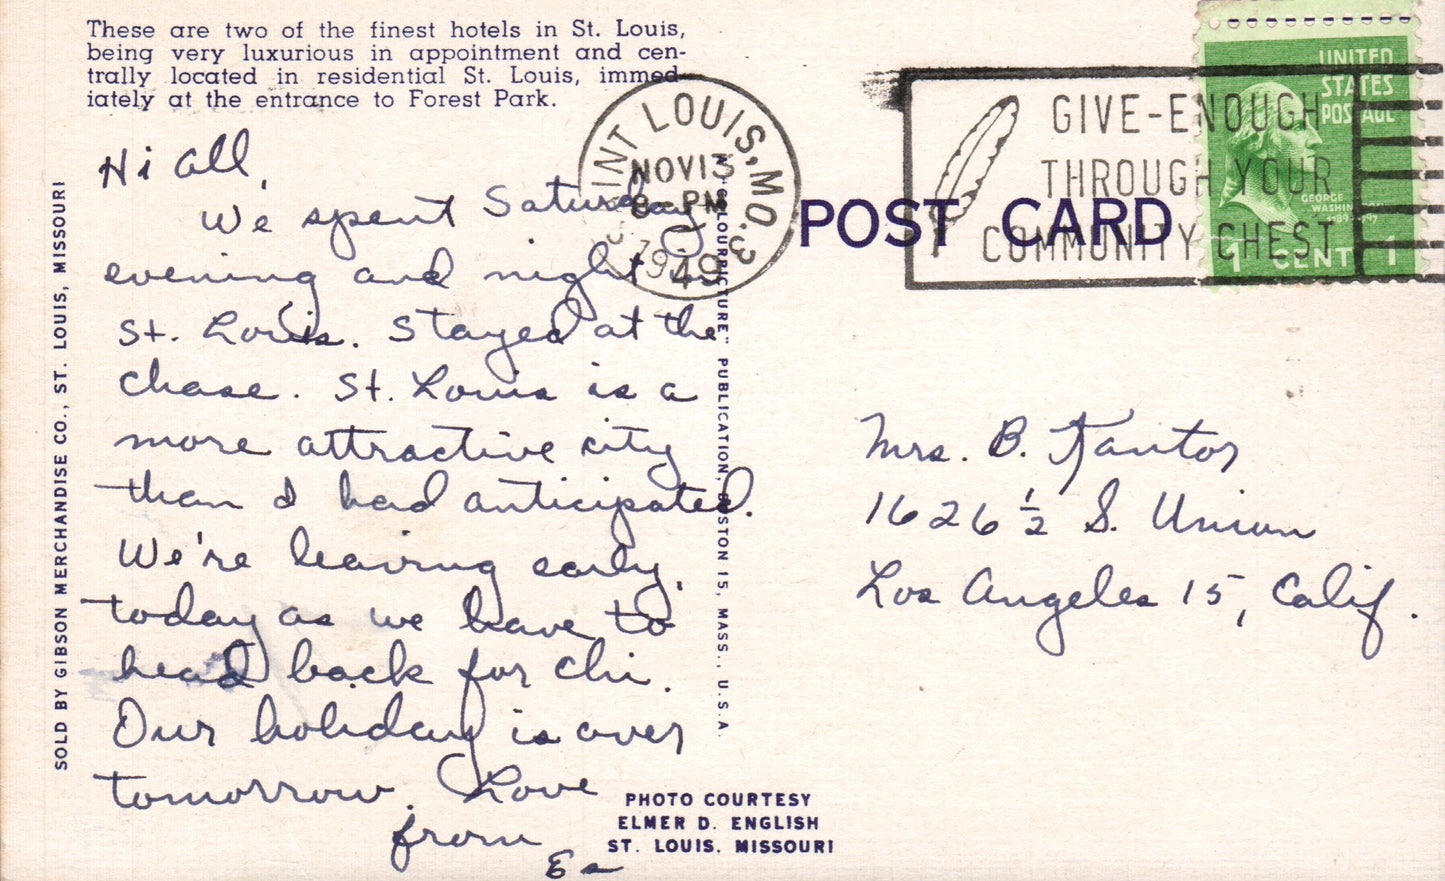 These are two of the finest hotels in St. Louis,
being very luxurious in appointment and cen-
trally located in residential St. Louis, immed
iately at the entrance to Forest Park.
Hi all,
We spent Saturday
evening and night
St. Louis. Stayed at the
Chase. St. Louis is a
more attractive city
than I had anticipated.
We're leaving early,
today as we have to
head back for Chi.
Our holiday is over
tomorrow. Love
from
SOLD BY GIBSON MERCHANDISE CO., ST. LOUIS, MISSOURI
SAINT LOUIS, MO. 3
NOV 13
8 PM
1949
GIVE-ENOUGH
THROUGH YOUR
COMMUNITY CHEST
UNITED
STATES
POSTAGE
GEORGE
WASHINGTON
1789-1797
1 CENT 1
POST CARD
COLOURPICTURE" PUBLICATION, BOSTON 15, MASS., U.S.A.
Mrs. B. Kantor
1626 ½ S. Union
Los Angeles 15, Calif.
PHOTO COURTESY
ELMER D. ENGLISH
ST. LOUIS, MISSOURI